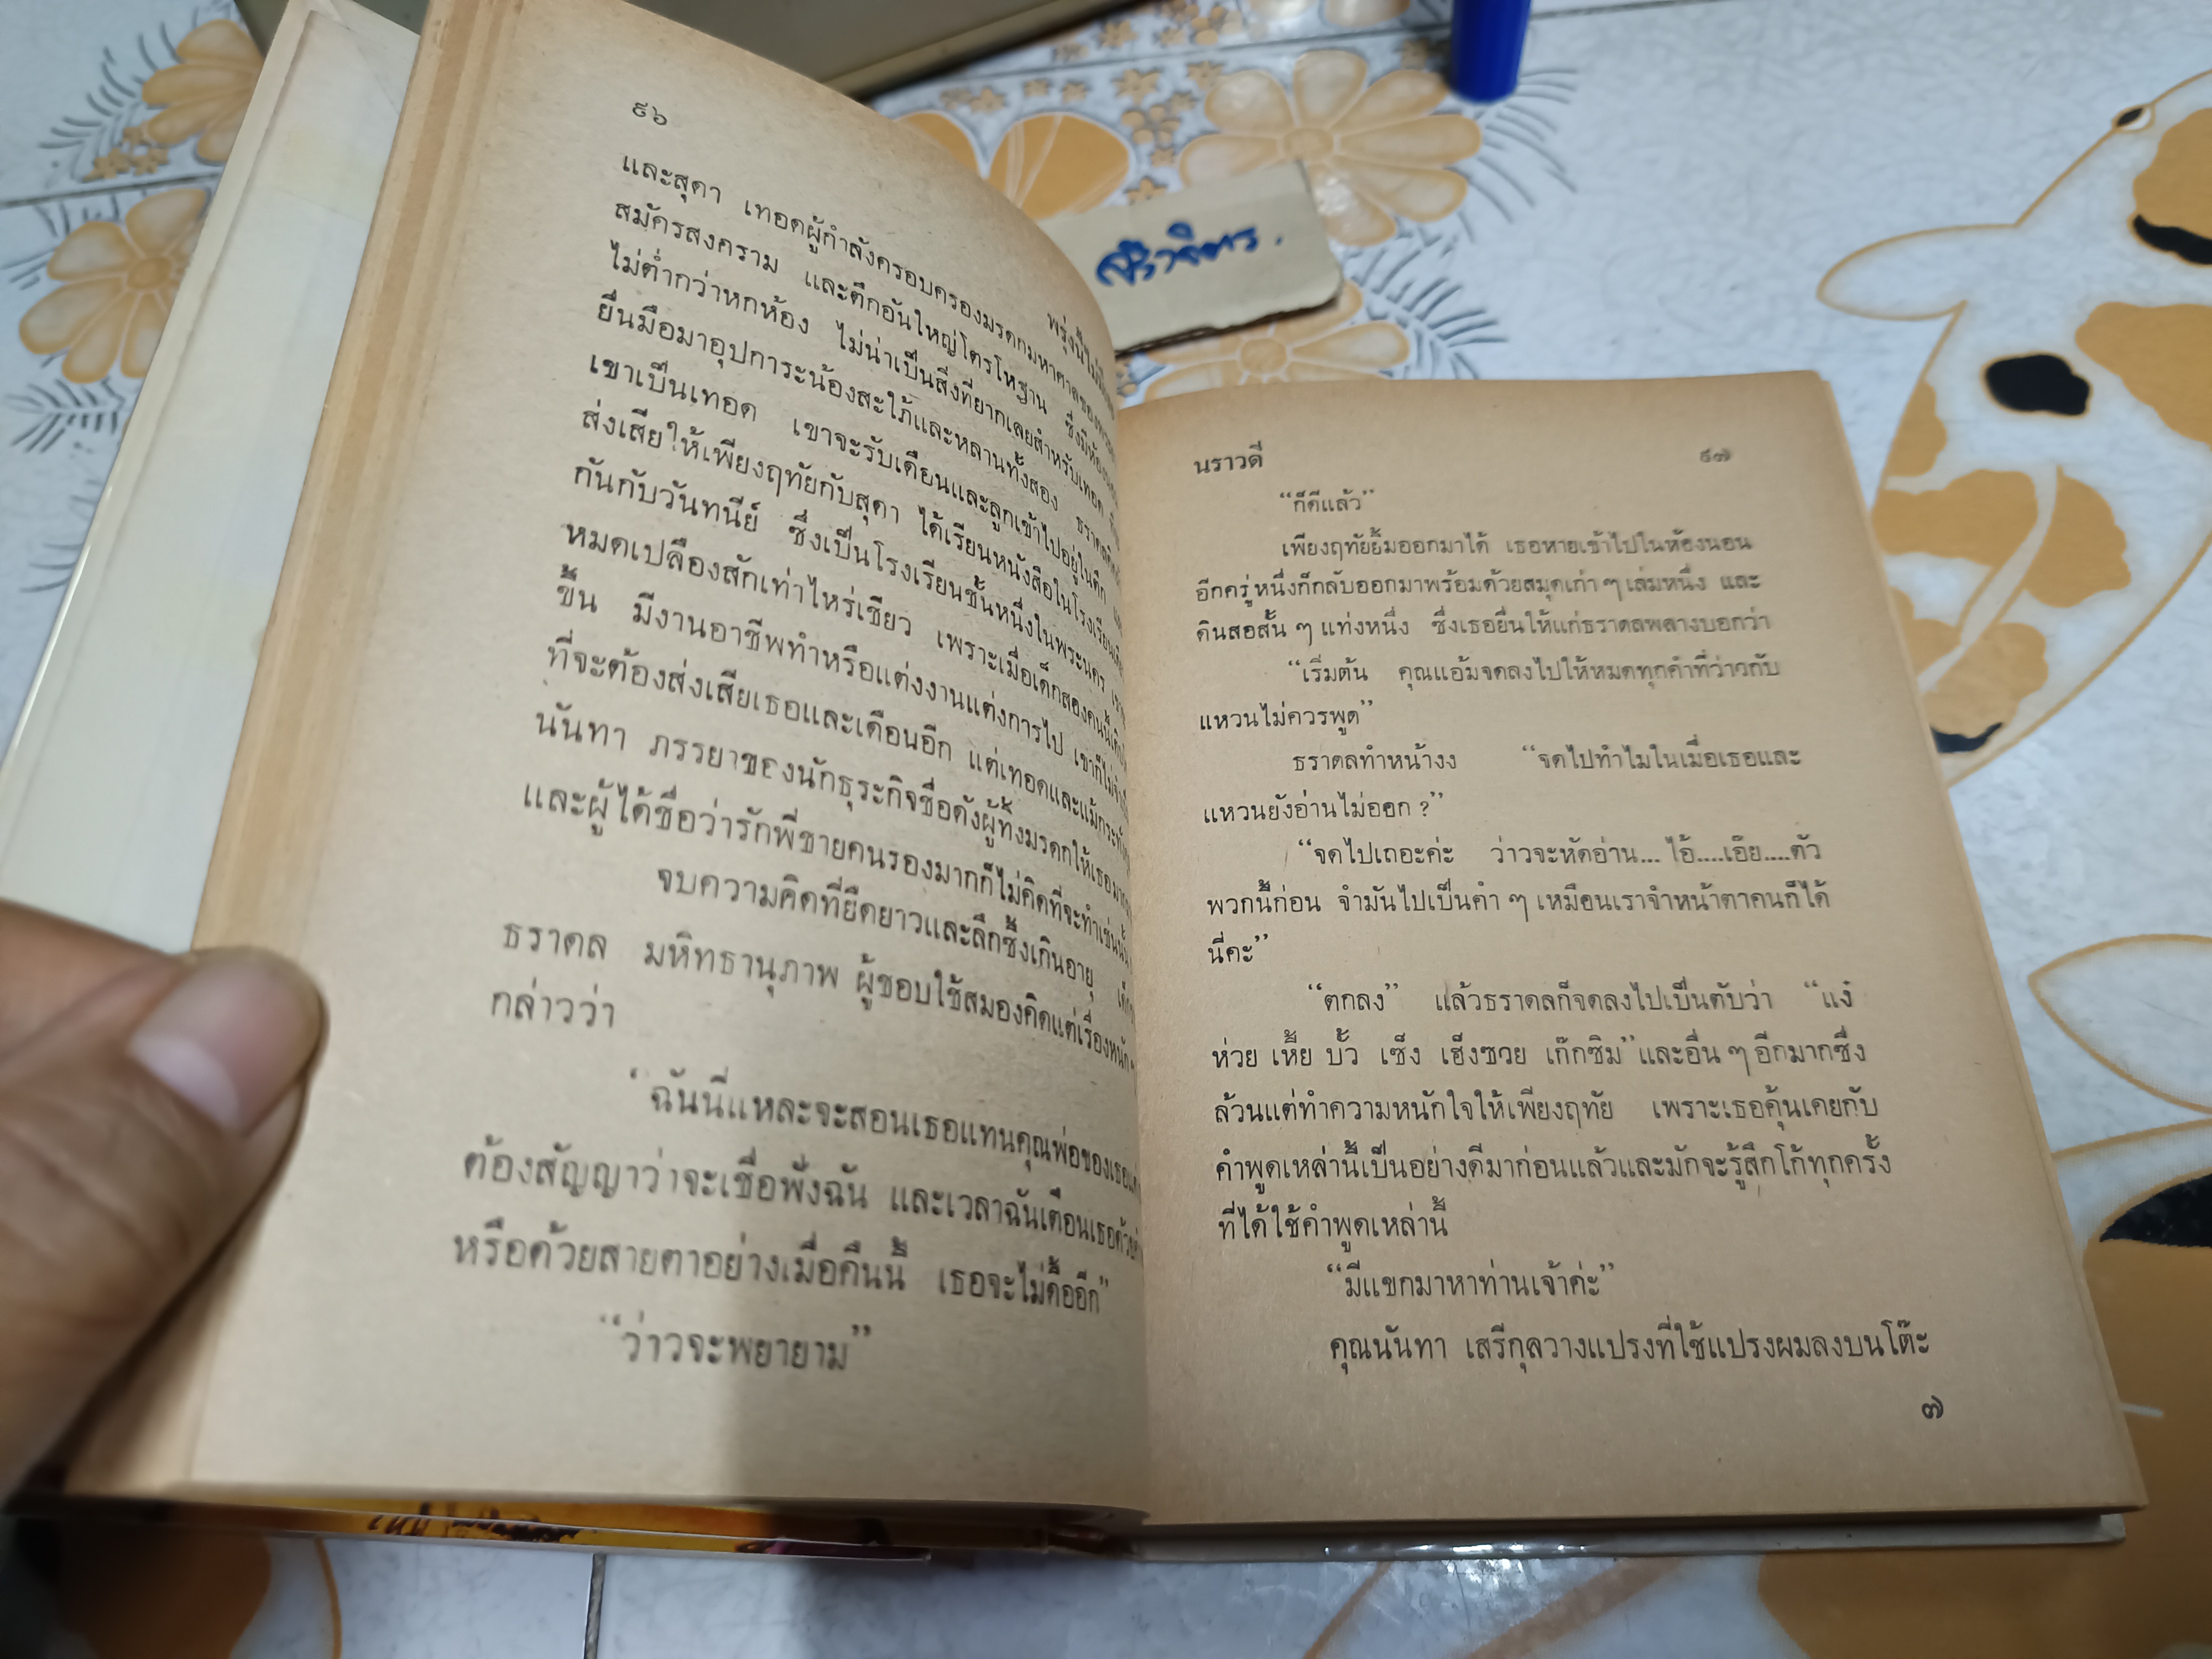 ๙๖
พรุ่งนี้ไม่มี
และสุดา เทอดผู้กำลังครอบครองมรดกมหาศาลของ
สมัครสงคราม และตึกอันใหญ่โตรโหฐาน ซึ่งมีห้อง
ไม่ต่ำกว่าหกห้อง ไม่น่าเป็นสิ่งที่ยากเลยสำหรับเทอด
ยื่นมือมาอุปการะน้องสะใภ้และหลานทั้งสอง ธราดล
เขาเป็นเทอด เขาจะรับเดือนและลูกเข้าไปอยู่ในตึก
ส่งเสียให้เพียงฤทัยกับสุดา ได้เรียนหนังสือในโรงเรียน
กันกับวันทนีย์ ซึ่งเป็นโรงเรียนชั้นหนึ่งในพระนคร
หมดเปลืองสักเท่าไหร่เชียว เพราะเมื่อเด็กสองคนนี้เติบ
ขึ้น มีงานอาชีพทำหรือแต่งงานแต่งการไป เขาก็ไม่
ที่จะต้องส่งเสียเธอและเดือนอีก แต่เทอดและแม้กระทั่ง
นันทา ภรรยาของนักธุระกิจชื่อดังผู้ทิ้งมรดกให้เธอมาก
และผู้ได้ชื่อว่ารักพี่ชายคนรองมากก็ไม่คิดที่จะทำเช่นนั้น
จบความคิดที่ยืดยาวและลึกซึ้งเกินอายุ
ธราดล มหิทธานุภาพ ผู้ชอบใช้สมองคิดแต่เรื่องหนัก
กล่าวว่า
ฉันนี่แหละจะสอนเธอแทนคุณพ่อของเธอ
ต้องสัญญาว่าจะเชื่อฟังฉัน และเวลาฉันเตือนเธอด้วย
หรือด้วยสายตาอย่างเมื่อคืนนี้ เธอจะไม่ดื้ออีก”
“ว่าวจะพยายาม”
นราวดี ๙๗
“ก็ดีแล้ว”
เพียงฤทัยยิ้มออกมาได้ เธอหายเข้าไปในห้องนอน
อีกครู่หนึ่งก็กลับออกมาพร้อมด้วยสมุดเก่า ๆ เล่มหนึ่ง และ
ดินสอสั้น ๆ แท่งหนึ่ง ซึ่งเธอยื่นให้แก่ธราดลพลางบอกว่า
“เริ่มต้น คุณแอ้มจดลงไปให้หมดทุกคำที่ว่าวกับ
แหวนไม่ควรพูด”
ธราดลทำหน้างง “จดไปทำไมในเมื่อเธอและ
แหวนยังอ่านไม่ออก ?”
“จดไปเถอะค่ะ ว่าวจะหัดอ่าน... ไอ้....เอ๊ย....ตัว
พวกนี้ก่อน จำมันไปเป็นคำ ๆ เหมือนเราจำหน้าตาคนก็ได้
นี่คะ”
“ตกลง” แล้วธราดลก็จดลงไปเป็นตับว่า “แง๋
ห่วย เหี้ย บั้ว เซ็ง เฮ็งซวย เก๊กซิม” และอื่น ๆ อีกมากซึ่ง
ล้วนแต่ทำความหนักใจให้เพียงฤทัย เพราะเธอคุ้นเคยกับ
คำพูดเหล่านี้เป็นอย่างดีมาก่อนแล้วและมักจะรู้สึกโก้ทุกครั้ง
ที่ได้ใช้คำพูดเหล่านี้
“มีแขกมาหาท่านเจ้าค่ะ”
คุณนันทา เสรีกุลวางแปรงที่ใช้แปรงผมลงบนโต๊ะ
๗